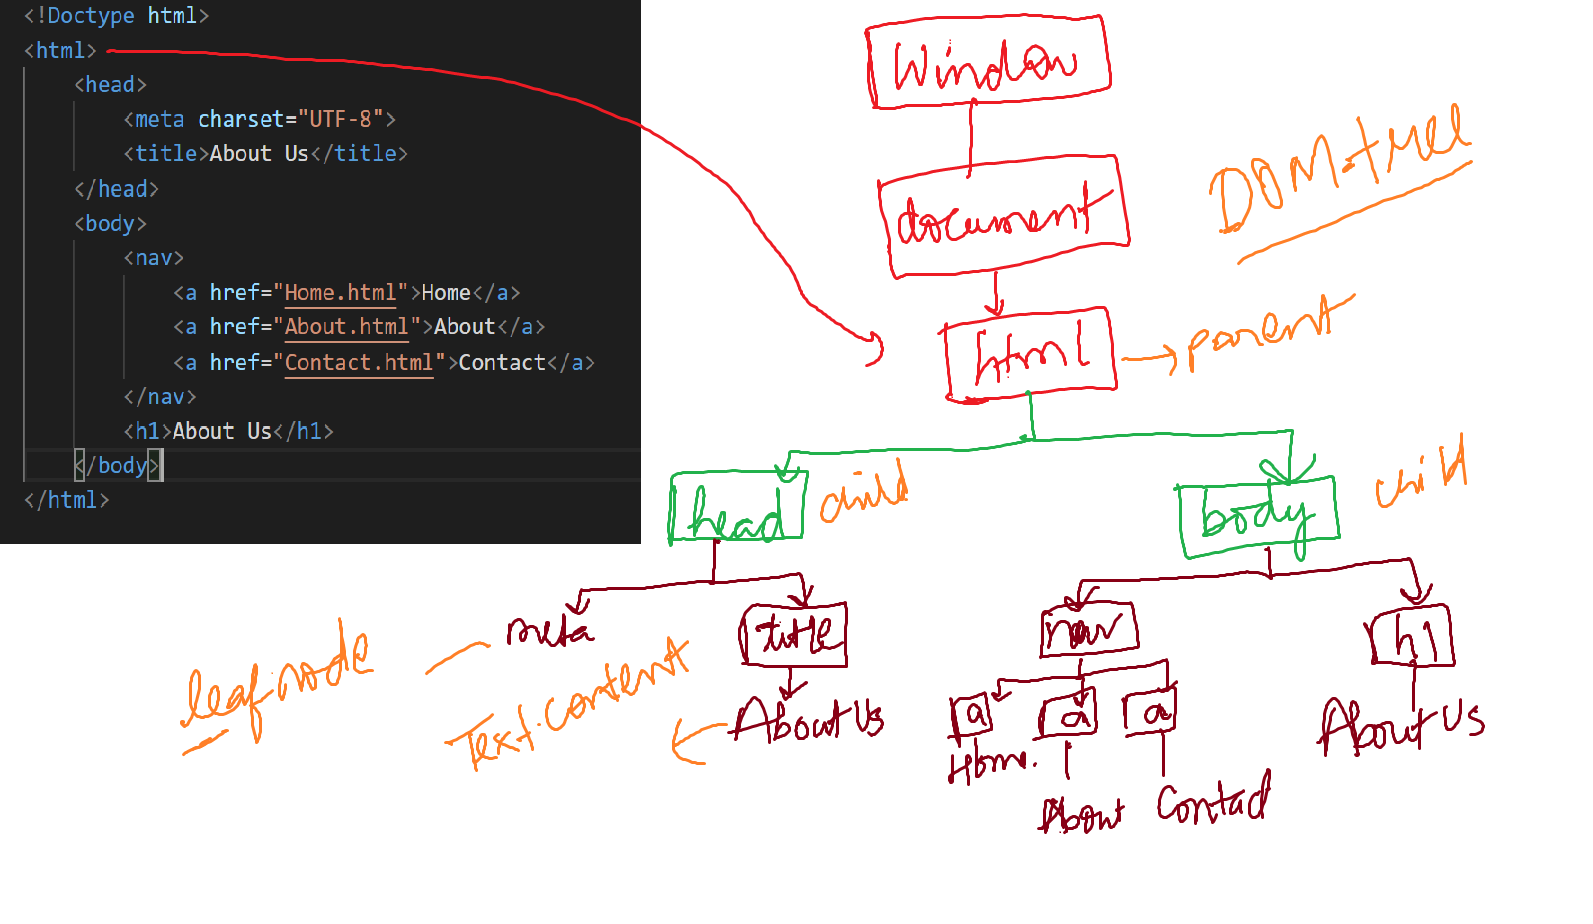 <!Doctype html>
<html>
<head>
<meta charset="UTF-8">
<title>About Us</title>
</head>
<body>
<nav>
<a href="Home.html">Home</a>
<a href="About.html">About</a>
<a href="Contact.html">Contact</a>
</nav>
<h1>About Us</h1>
</body>
</html>
Window
document
DOM-tree
html
parent
head
child
body
child
leaf-node
meta
title
nav
h1
Text-Content
About Us
a
a
a
About Us
Home.
About
Contact